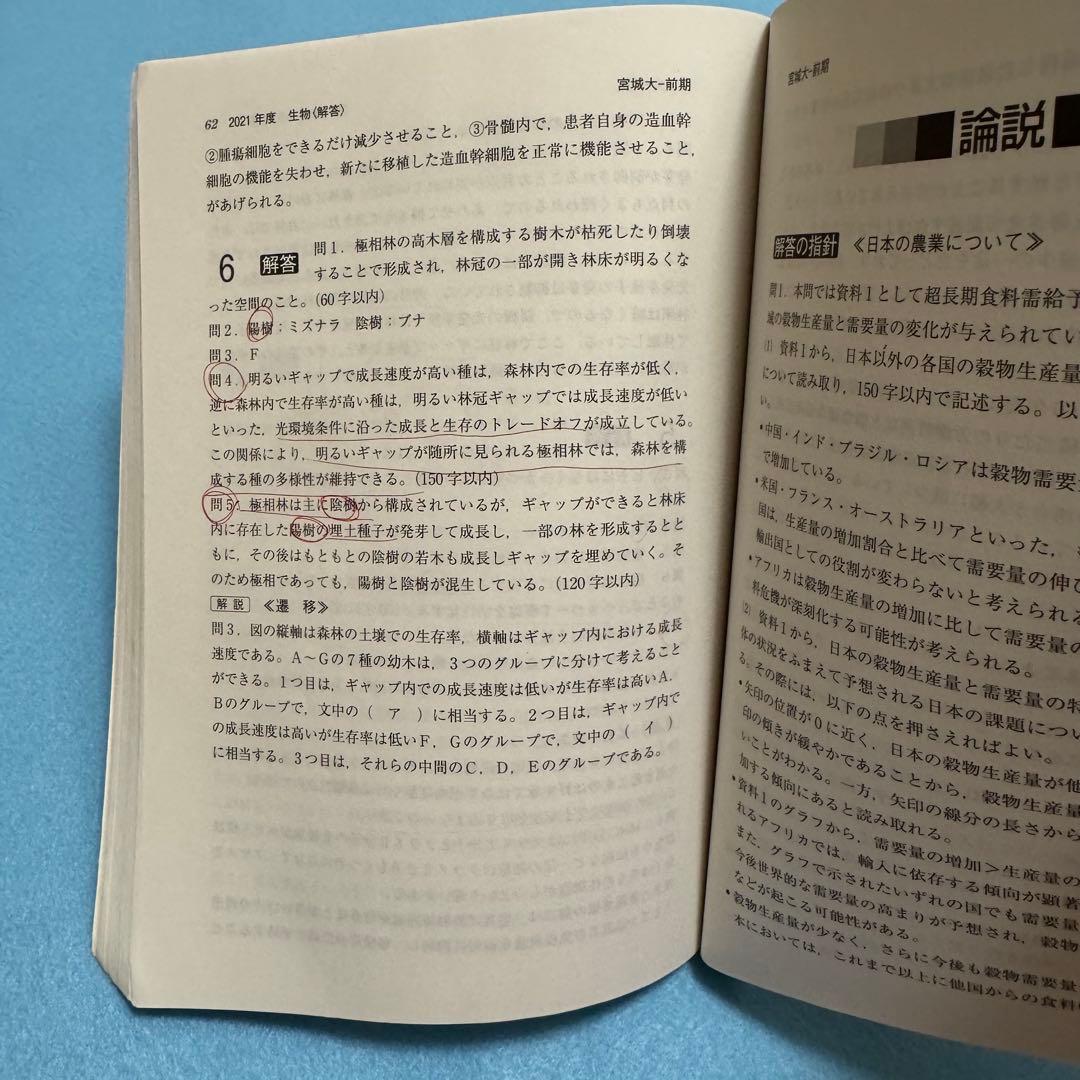 62 2021年度 生物〈解答〉
宮城大-前期
②腫瘍細胞をできるだけ減少させること，③骨髄内で，患者自身の造血幹
細胞の機能を失わせ，新たに移植した造血幹細胞を正常に機能させること，
があげられる。
6 解答 問1．極相林の高木層を構成する樹木が枯死したり倒壊
することで形成され，林冠の一部が開き林床が明るくな
った空間のこと。(60字以内)
問2．陽樹：ミズナラ 陰樹：ブナ
問3．F
問4．明るいギャップで成長速度が高い種は，森林内での生存率が低く，
逆に森林内で生存率が高い種は，明るい林冠ギャップでは成長速度が低い
といった，光環境条件に沿った成長と生存のトレードオフが成立している。
この関係により，明るいギャップが随所に見られる極相林では，森林を構
成する種の多様性が維持できる。(150字以内)
問5．極相林は主に陰樹から構成されているが，ギャップができると林床
内に存在した陽樹の埋土種子が発芽して成長し，一部の林を形成するとと
もに，その後はもともとの陰樹の若木も成長しギャップを埋めていく。そ
のため極相であっても，陽樹と陰樹が混生している。(120字以内)
解説 《遷 移》
問3．図の縦軸は森林の土壌での生存率，横軸はギャップ内における成長
速度である。A～Gの7種の幼木は，3つのグループに分けて考えること
ができる。1つ目は，ギャップ内での成長速度は低いが生存率は高いA，
Bのグループで，文中の（ ア ）に相当する。2つ目は，ギャップ内で
の成長速度は高いが生存率は低いF，Gのグループで，文中の（ イ ）
に相当する。3つ目は，それらの中間のC，D，Eのグループである。
宮城大-前期
論説
解答の指針 《日本の農業について》
問1．本問では資料1として超長期食料需給予
域の穀物生産量と需要量の変化が与えられてい
(1) 資料1から，日本以外の各国の穀物生産量
について読み取り，150字以内で記述する。以
い。
•中国・インド・ブラジル・ロシアは穀物需要
で増加している。
•米国・フランス・オーストラリアといった，
国は，生産量の増加割合と比べて需要量の伸び
輸出国としての役割が変わらないと考えられる
•アフリカは穀物生産量の増加に比して需要量の
料危機が深刻化する可能性が考えられる。
(2) 資料1から，日本の穀物生産量と需要量の特
体の状況をふまえて予想される日本の課題につい
る。その際には，以下の点を押さえればよい。
•矢印の位置が0に近く，日本の穀物生産量が他
印の傾きが緩やかであることから，穀物生産量
いことがわかる。一方，矢印の線分の長さから
加する傾向にあると読み取れる。
•資料1のグラフから，需要量の増加＞生産量の
れるアフリカでは，輸入に依存する傾向が顕著
また，グラフで示されたいずれの国でも需要量
今後世界的な需要量の高まりが予想され，穀物
などが起こる可能性がある。
•穀物生産量が少なく，さらに今後も穀物需要量
本においては，これまで以上に他国からの食料